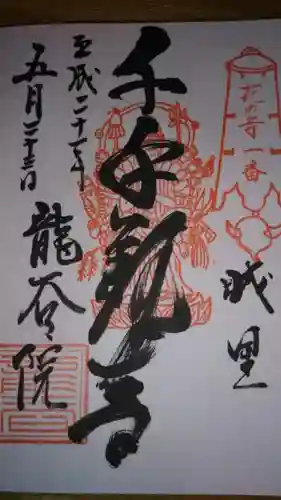 一番
城里
千手観音
平成二十一年
五月二十三日
龍谷院